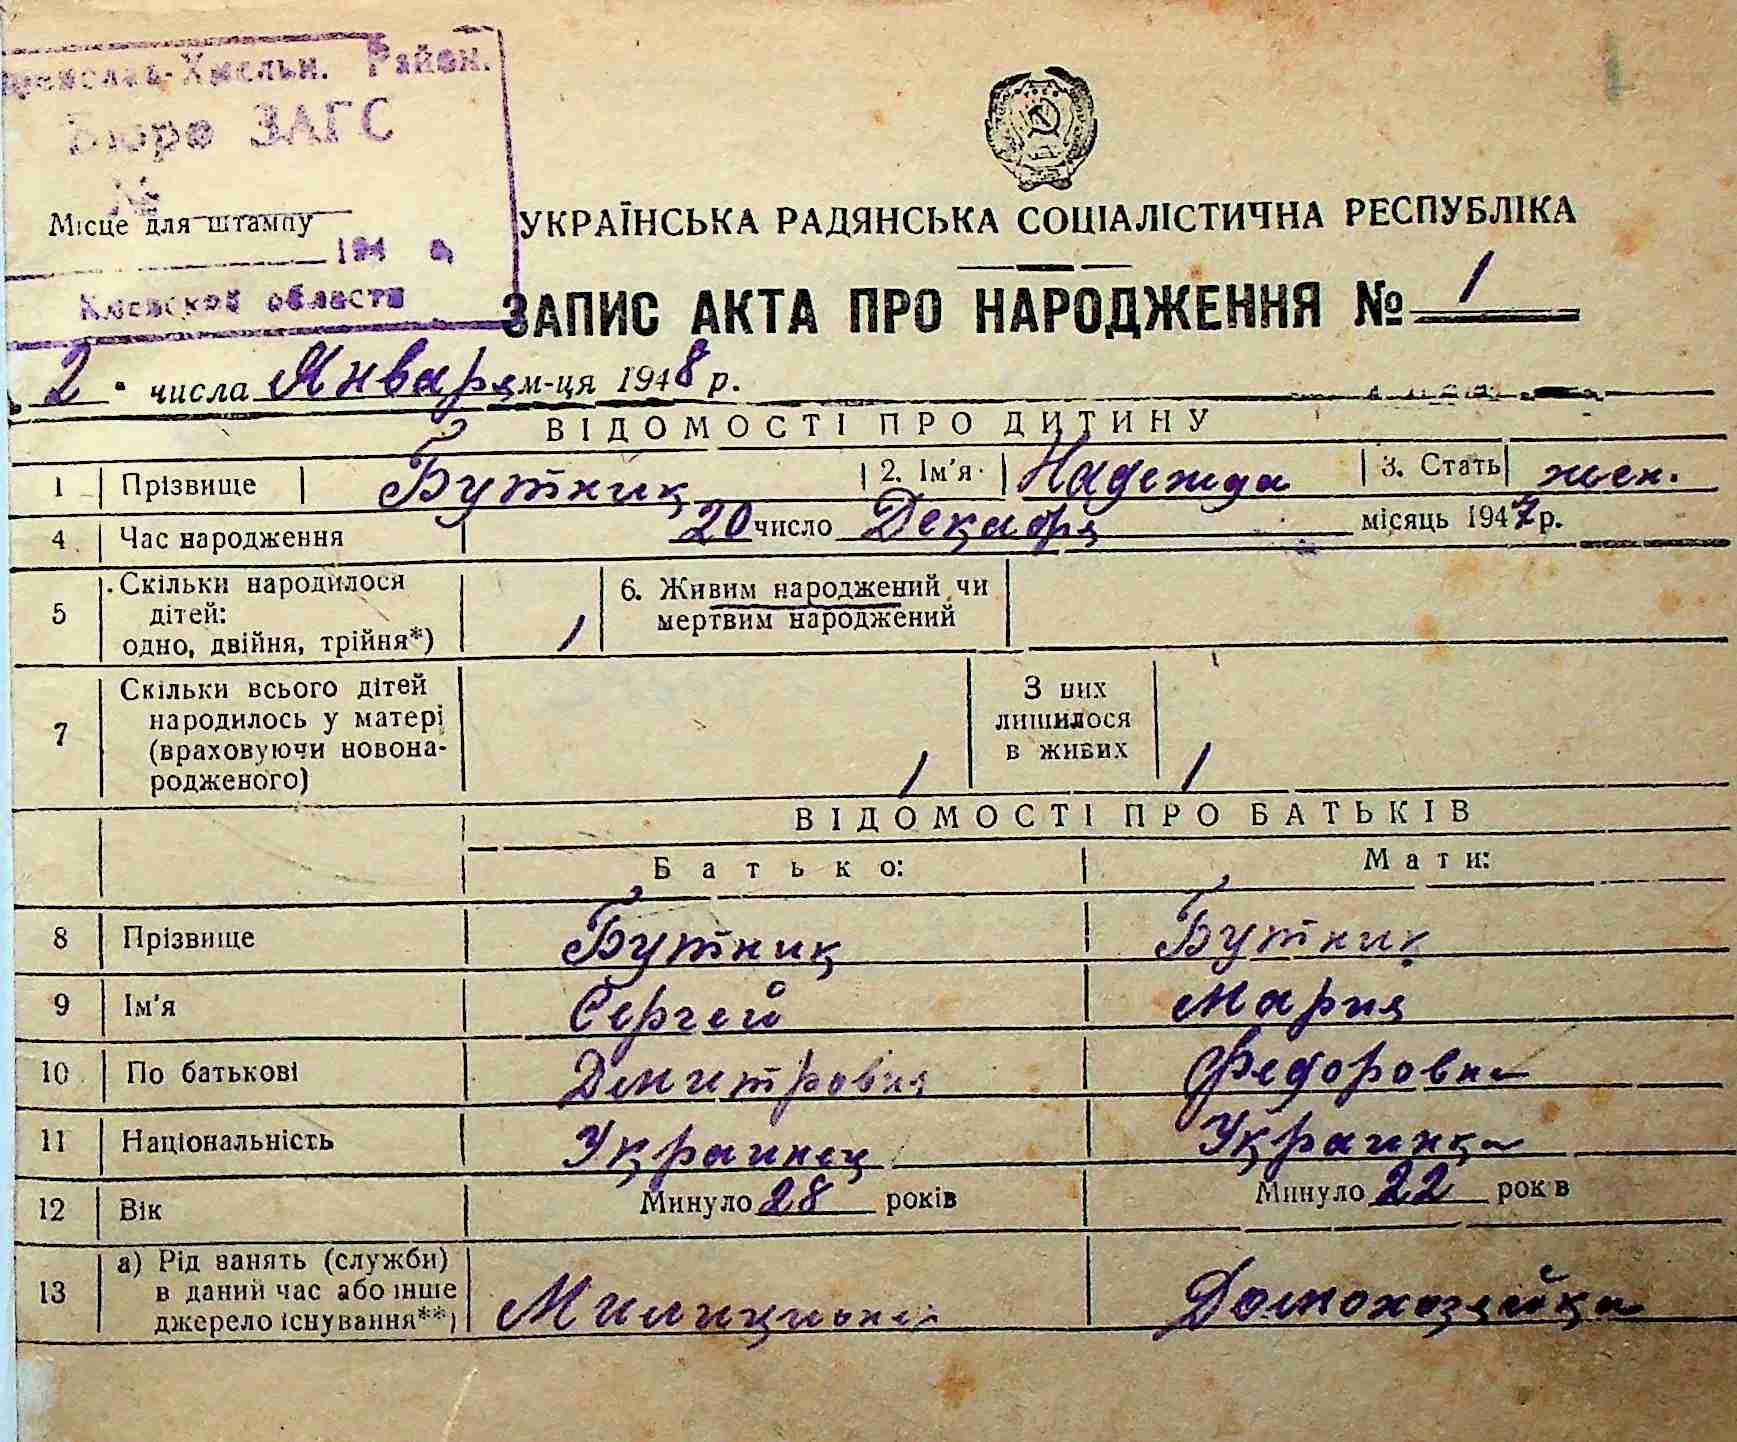 Хмельн. Район.
Бюро ЗАГС
№
Місце для штампу
194
Киевской области
УКРАЇНСЬКА РАДЯНСЬКА СОЦІАЛІСТИЧНА РЕСПУБЛІКА
ЗАПИС АКТА ПРО НАРОДЖЕННЯ № 1
2 числа Января м-ця 1948 р.
ВІДОМОСТІ ПРО ДИТИНУ
1 Прізвище Бутник 2. Ім'я Надежда 3. Стать жен.
4 Час народження 20 число Декабря місяць 1947 р.
5 Скільки народилося дітей: одно, двійня, трійня*) 1 6. Живим народжений чи мертвим народжений
7 Скільки всього дітей народилось у матері (враховуючи новонародженого) 1 З них лишилося в живих 1
ВІДОМОСТІ ПРО БАТЬКІВ
Батько: Мати:
8 Прізвище Бутник Бутник
9 Ім'я Сергей Мария
10 По батькові Федоровна
11 Національність Украинец Украинка
12 Вік Минуло 28 років Минуло 22 років
13 а) Рід занять (служби) в даний час або інше джерело існування**) Домохозяйка